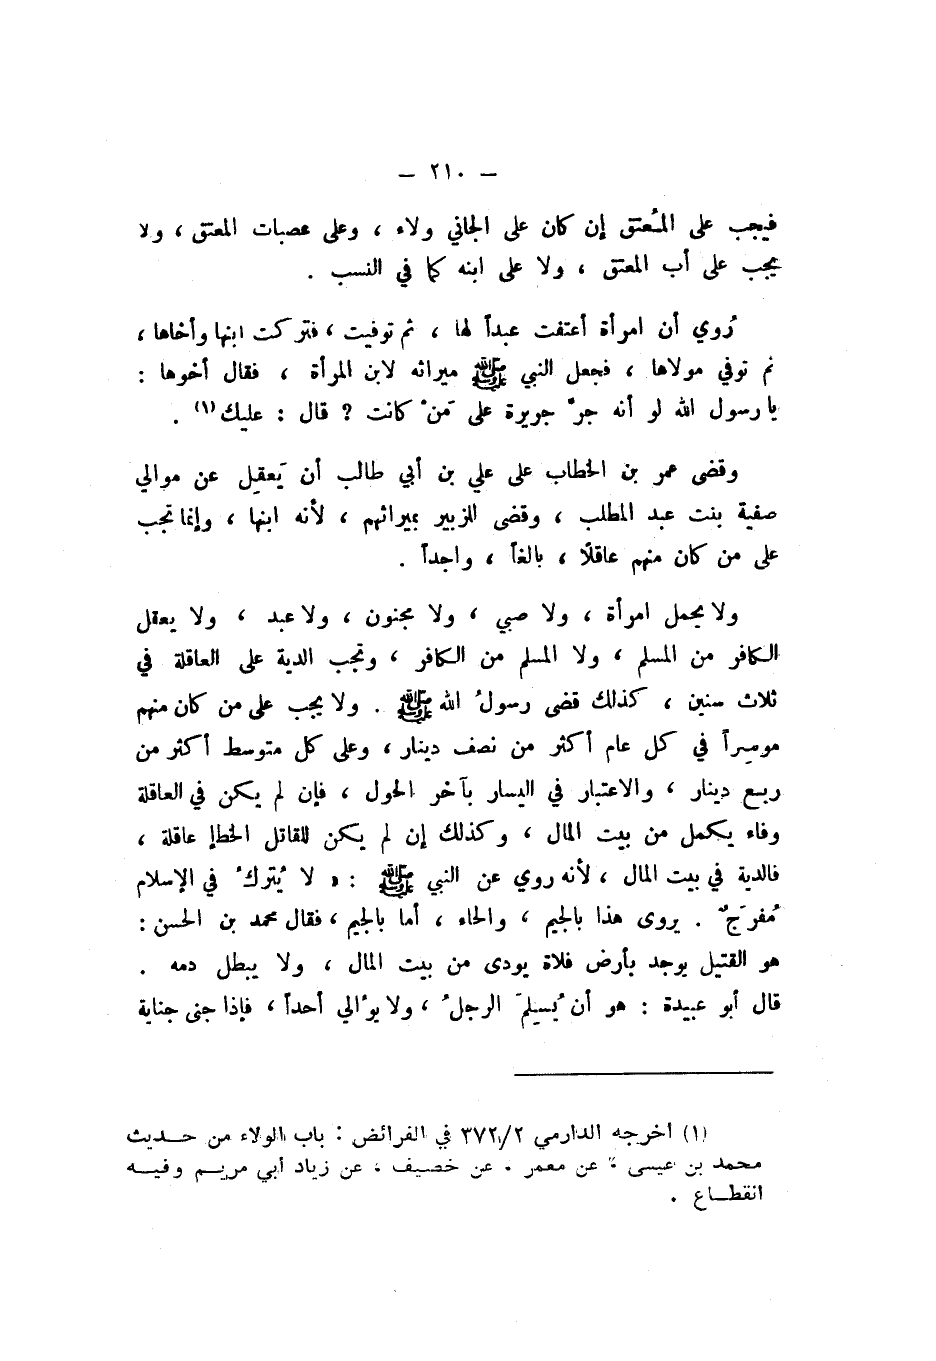 — ٢١٠ —
فيجب على المُعتق إن كان على الجاني ولاء ، وعلى عصبات المعتق ، ولا
يجب على أب المعتق ، ولا على ابنه كما في النسب .
رُوي أن امرأة أعتقت عبداً لها ، ثم توفيت ، فتركت ابنها وأخاها ،
ثم توفي مولاها ، فجعل النبي ﷺ ميراثه لابن المرأة ، فقال أخوها :
يا رسول الله لو أنه جرَّ جريرة على مَنْ كانت ؟ قال : عليك (١) .
وقضى عمر بن الخطاب على علي بن أبي طالب أن يَعقِل عن موالي
صفية بنت عبد المطلب ، وقضى للزبير بميراثهم ، لأنه ابنها ، وإنما تجب
على من كان منهم عاقلًا ، بالغاً ، واجداً .
ولا يحمل امرأة ، ولا صبي ، ولا مجنون ، ولا عبد ، ولا يعقل
الكافر من المسلم ، ولا المسلم من الكافر ، وتجب الدية على العاقلة في
ثلاث سنين ، كذلك قضى رسولُ الله ﷺ . ولا يجب على من كان منهم
موسراً في كل عام أكثر من نصف دينار ، وعلى كل متوسط أكثر من
ربع دينار ، والاعتبار في اليسار بآخر الحول ، فإن لم يكن في العاقلة
وفاء يكمل من بيت المال ، وكذلك إن لم يكن للقاتل الخطإ عاقلة ،
فالدية في بيت المال ، لأنه روي عن النبي ﷺ : « لا يُتركُ في الإسلام
مُفرَجٌ . يروى هذا بالجيم ، والحاء ، أما بالجيم ، فقال محمد بن الحسن :
هو القتيل يوجد بأرض فلاة يودى من بيت المال ، ولا يبطل دمه .
قال أبو عبيدة : هو أن يُسلِمَ الرجلُ ، ولا يوالي أحداً ، فإذا جنى جناية
(١) اخرجه الدارمي ٣٧٢/٢ في الفرائض : باب الولاء من حديث
محمد بن عيسى ، عن معمر ، عن خصيف ، عن زياد أبي مريم وفيه
انقطاع .